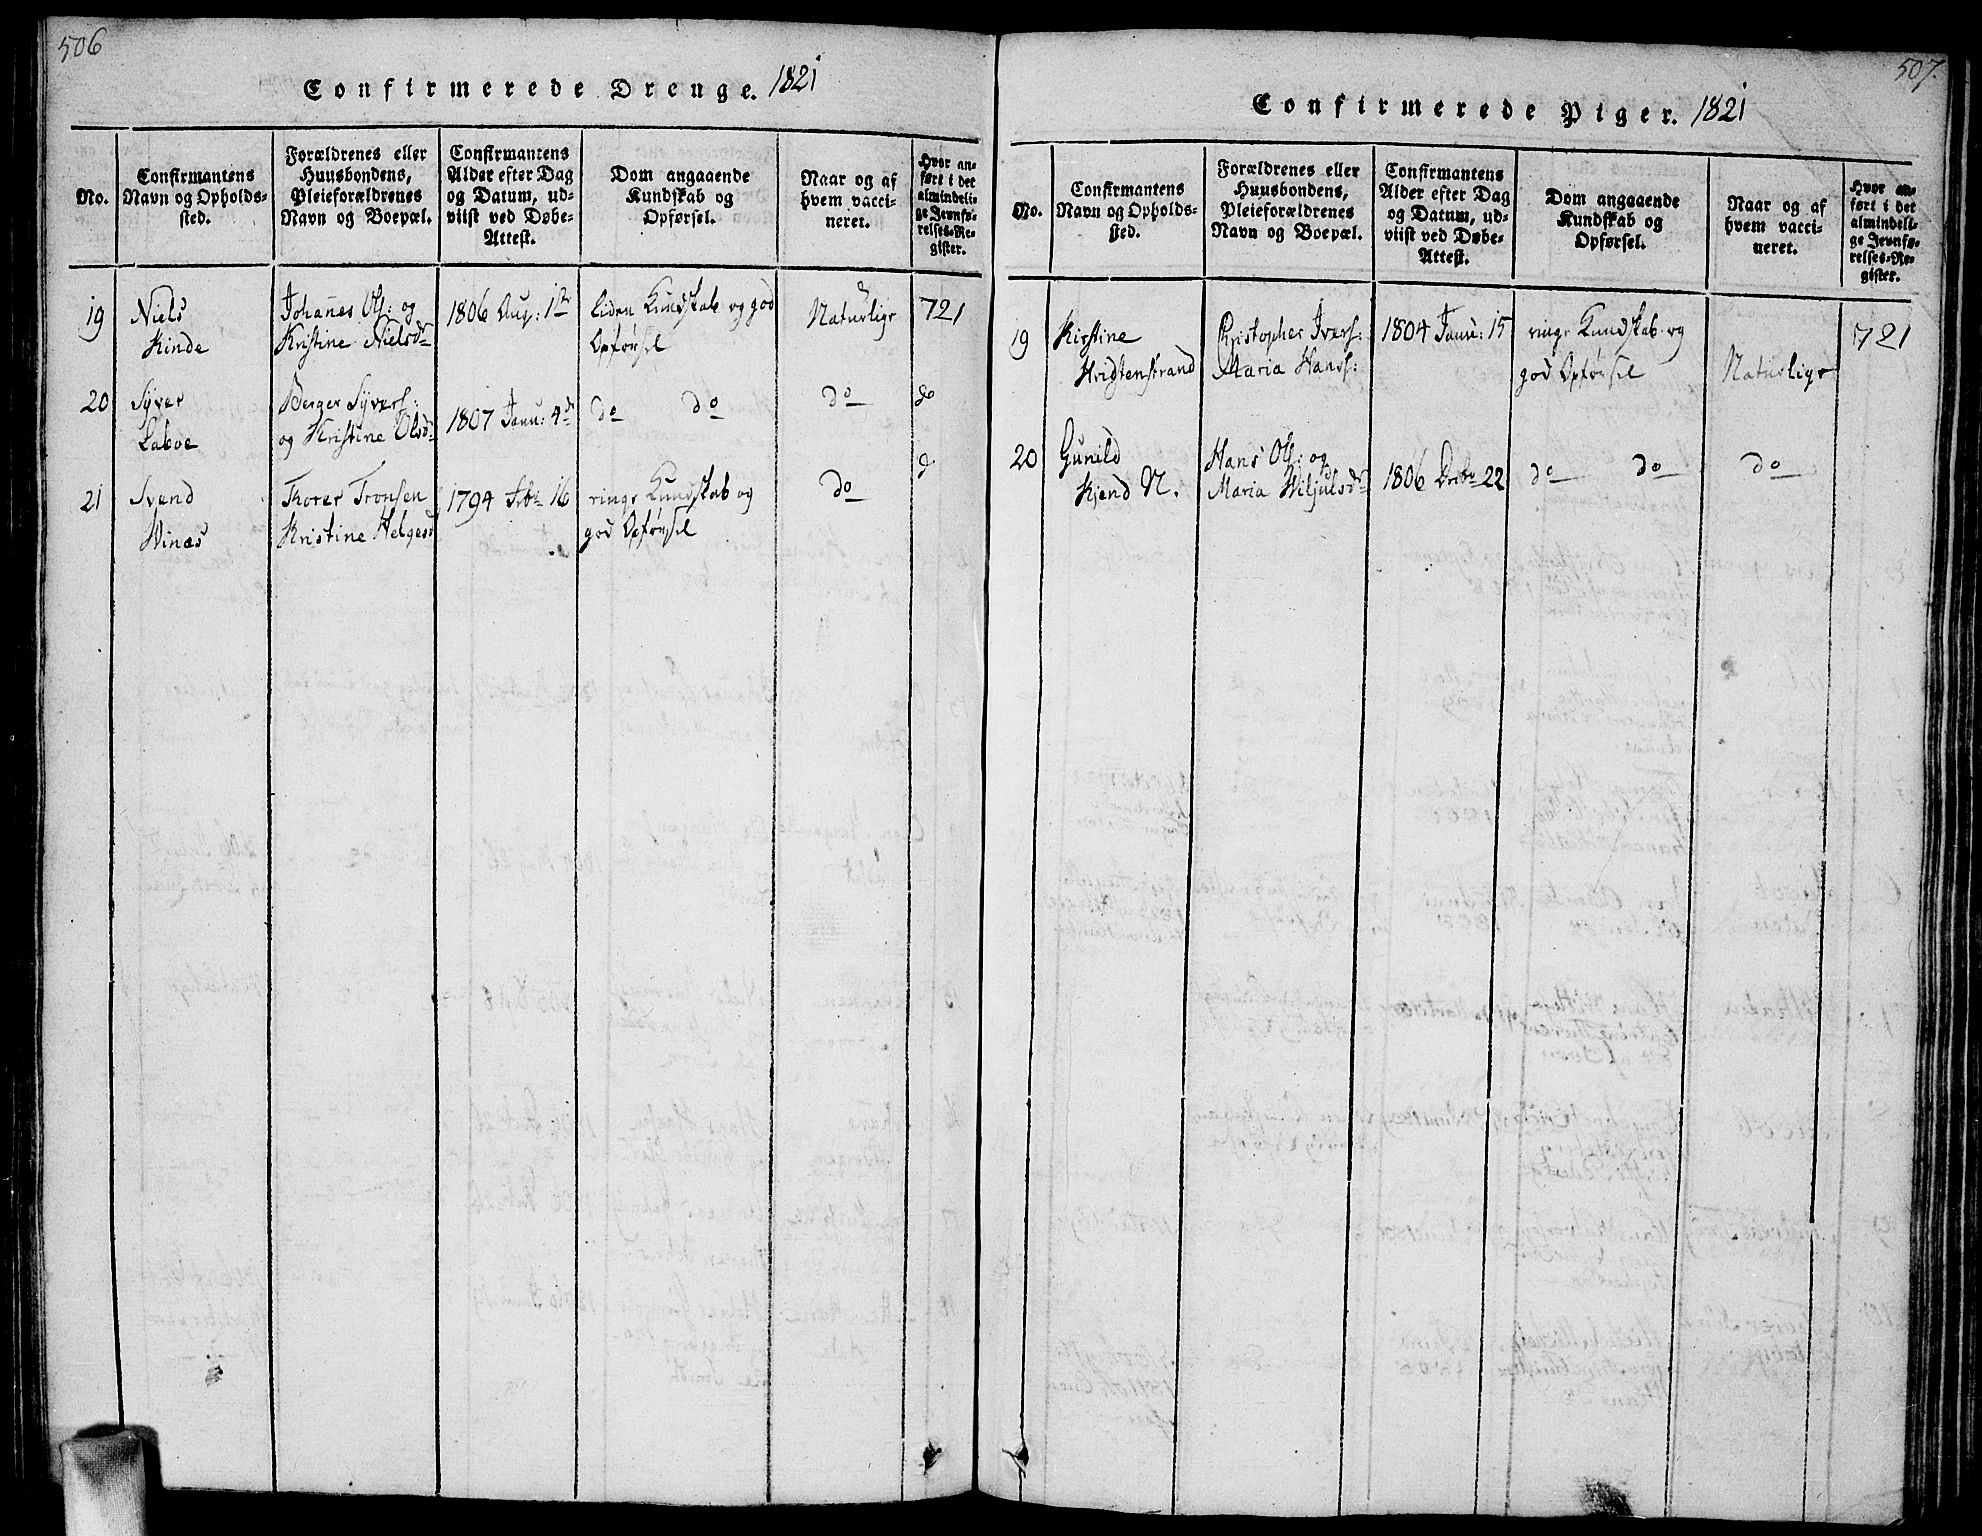 506
Confirmerede Drenge. 1821
No.
Confirmantens
Navn og Opholds-
sted.
Forældrenes eller
Huusbondens,
Pleieforældrenes
Navn og Boepæl.
Confirmantens
Alder efter Dag
og Datum, ud-
viist ved Døbe-
Attest.
Dom angaaende
Kundskab og
Opførsel.
Naar og af
hvem vacci-
neret.
Hvor an-
ført i det
almindeli-
ge Jevnfø-
relses-Re-
gister.
19 Niels
Kinde
Johanes Ols: og
Kristine Nielsdr
1806 Aug: 1st
liden Kundskab og god
Opførsel
Naturlige
721
20 Syver
Laboe
Berger Syvers:
og Kristine Olsdr
1807 Janu: 4de
do do
do
do
21 Svend
Winæs
Thorer Tronsen
Kristine Helgesd
1794 Febr 16
ringe Kundskab og
god Opførsel
do
d
507.
Confirmerede Piger. 1821
No.
Confirmantens
Navn og Opholds-
sted.
Forældrenes eller
Huusbondens,
Pleieforældrenes
Navn og Boepæl.
Confirmantens
Alder efter Dag
og Datum, ud-
viist ved Døbe-
Attest.
Dom angaaende
Kundskab og
Opførsel.
Naar og af
hvem vacci-
neret.
Hvor an-
ført i det
almindeli-
ge Jevnfø-
relses-Re-
gister.
19 Kirstine
Hvidtenstrand
Kristopher Ivers:
Maria Hans:
1804 Janu: 15
ringe Kundskab og
god Opførsel
Naturlige
721
20 Gunild
Kjend N.
Hans Ols: og
Maria Wiljulsdr
1806 Decbr 22
do do
do